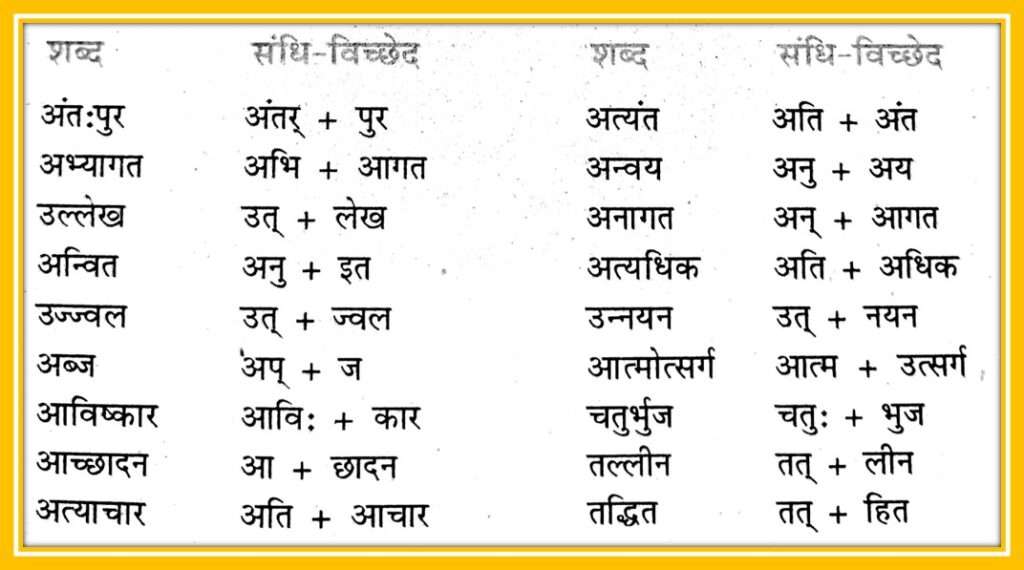 शब्द संधि-विच्छेद शब्द संधि-विच्छेद
अंत:पुर अंतर् + पुर अत्यंत अति + अंत
अभ्यागत अभि + आगत अन्वय अनु + अय
उल्लेख उत् + लेख अनागत अन् + आगत
अन्वित अनु + इत अत्यधिक अति + अधिक
उज्ज्वल उत् + ज्वल उन्नयन उत् + नयन
अब्ज अप् + ज आत्मोत्सर्ग आत्म + उत्सर्ग
आविष्कार आवि: + कार चतुर्भुज चतु: + भुज
आच्छादन आ + छादन तल्लीन तत् + लीन
अत्याचार अति + आचार तद्धित तत् + हित